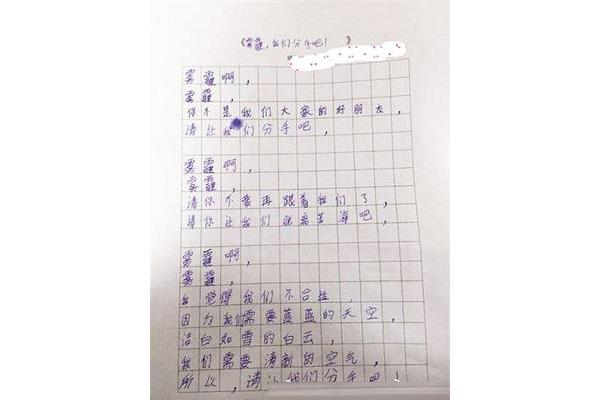 《雾霾,我们分手吧! 》
雾霾啊,
雾霾,
你不是我们大家的好朋友,
请让我们分手吧,
雾霾啊,
雾霾,
请你不要再跟着我们了,
请你让我们脱离苦海吧,
雾霾啊,
雾霾,
我觉得我们不合适,
因为我们需要蓝蓝的天空,
洁白如雪的白云,
我们需要清新的空气,
所以,请让我们分手吧!